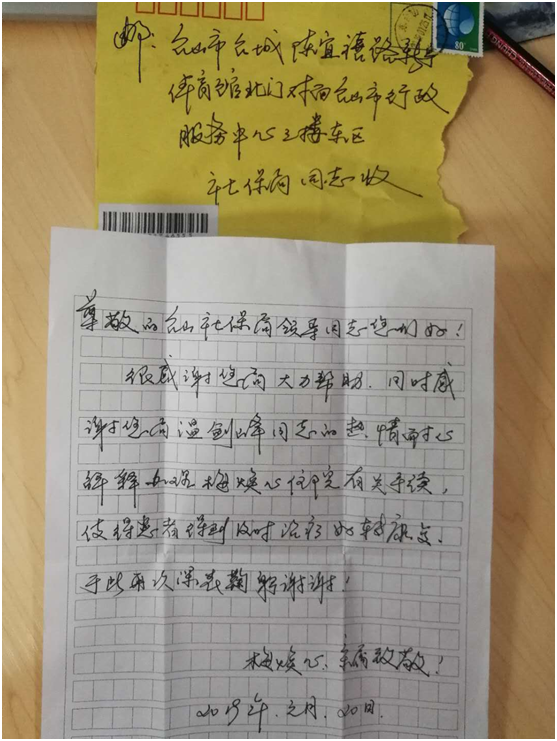 邮：台山市台城陈宜禧路新宁
体育馆北门对面台山市行政
服务中心三楼东区
社保局同志收
80
尊敬的台山社保局领导同志您们好！
很感谢您局大力帮助．同时感
谢您局温剑峰同志的热情耐心
解释办理梅焕心住院有关手续，
使得患者得到及时治疗好转康复．
于此再次深表鞠躬谢谢！
梅焕心．亲属致敬！
2019年．元月．20日．